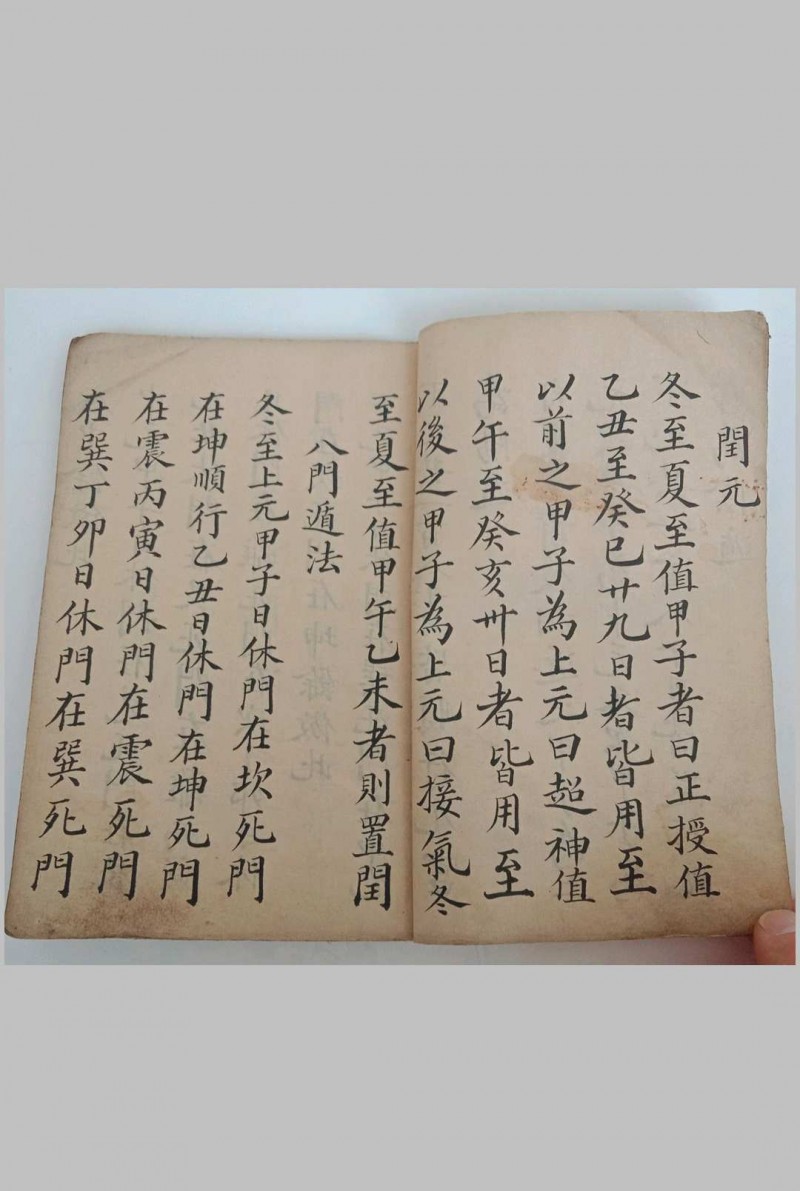 閏元
冬至夏至值甲子者曰正授值
乙丑至癸巳廿九日者皆用至
以前之甲子為上元曰超神值
甲午至癸亥卅日者皆用至
以後之甲子為上元曰接氣冬
至夏至值甲午乙未者則置閏
八門遁法
冬至上元甲子日休門在坎死門
在坤順行乙丑日休門在坤死門
在震丙寅日休門在震死門
在巽丁卯日休門在巽死門